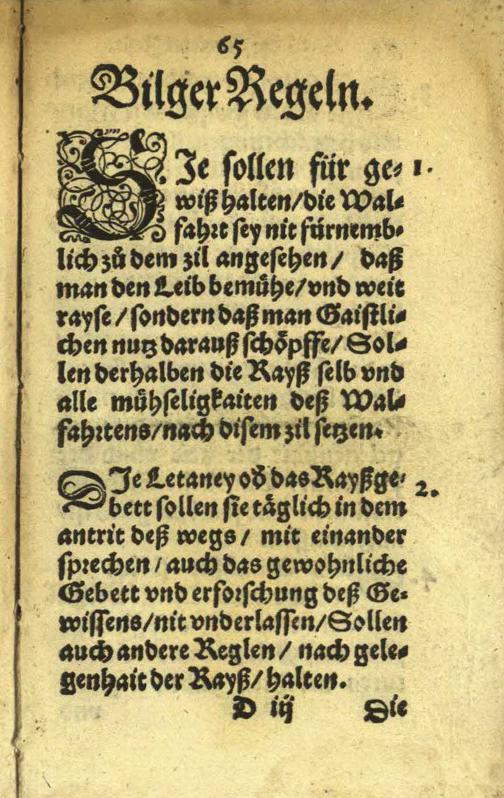 65
Bilger Regeln.
SJe sollen für ge⸗ 1.
wiß halten/die Wal⸗
fahrt sey nit fürnemb⸗
lich zů dem zil angesehen/ daß
man den Leib bemühe/vnd weit
rayse/sondern daß man Gaistli⸗
chen nutz darauß schöpffe/Sol⸗
len derhalben die Rayß selb vnd
alle mühseligkaiten deß Wal⸗
fahrtens/nach disem zil setzen.
DJe Letaney oď das Rayßge⸗ 2.
bett sollen sie täglich in dem
antrit deß wegs/ mit einander
sprechen/auch das gewohnliche
Gebett vnd erforschung deß Ge⸗
wissens/nit vnderlassen/Sollen
auch andere Reglen/ nach gele⸗
genhait der Rayß/halten.
D iij Die